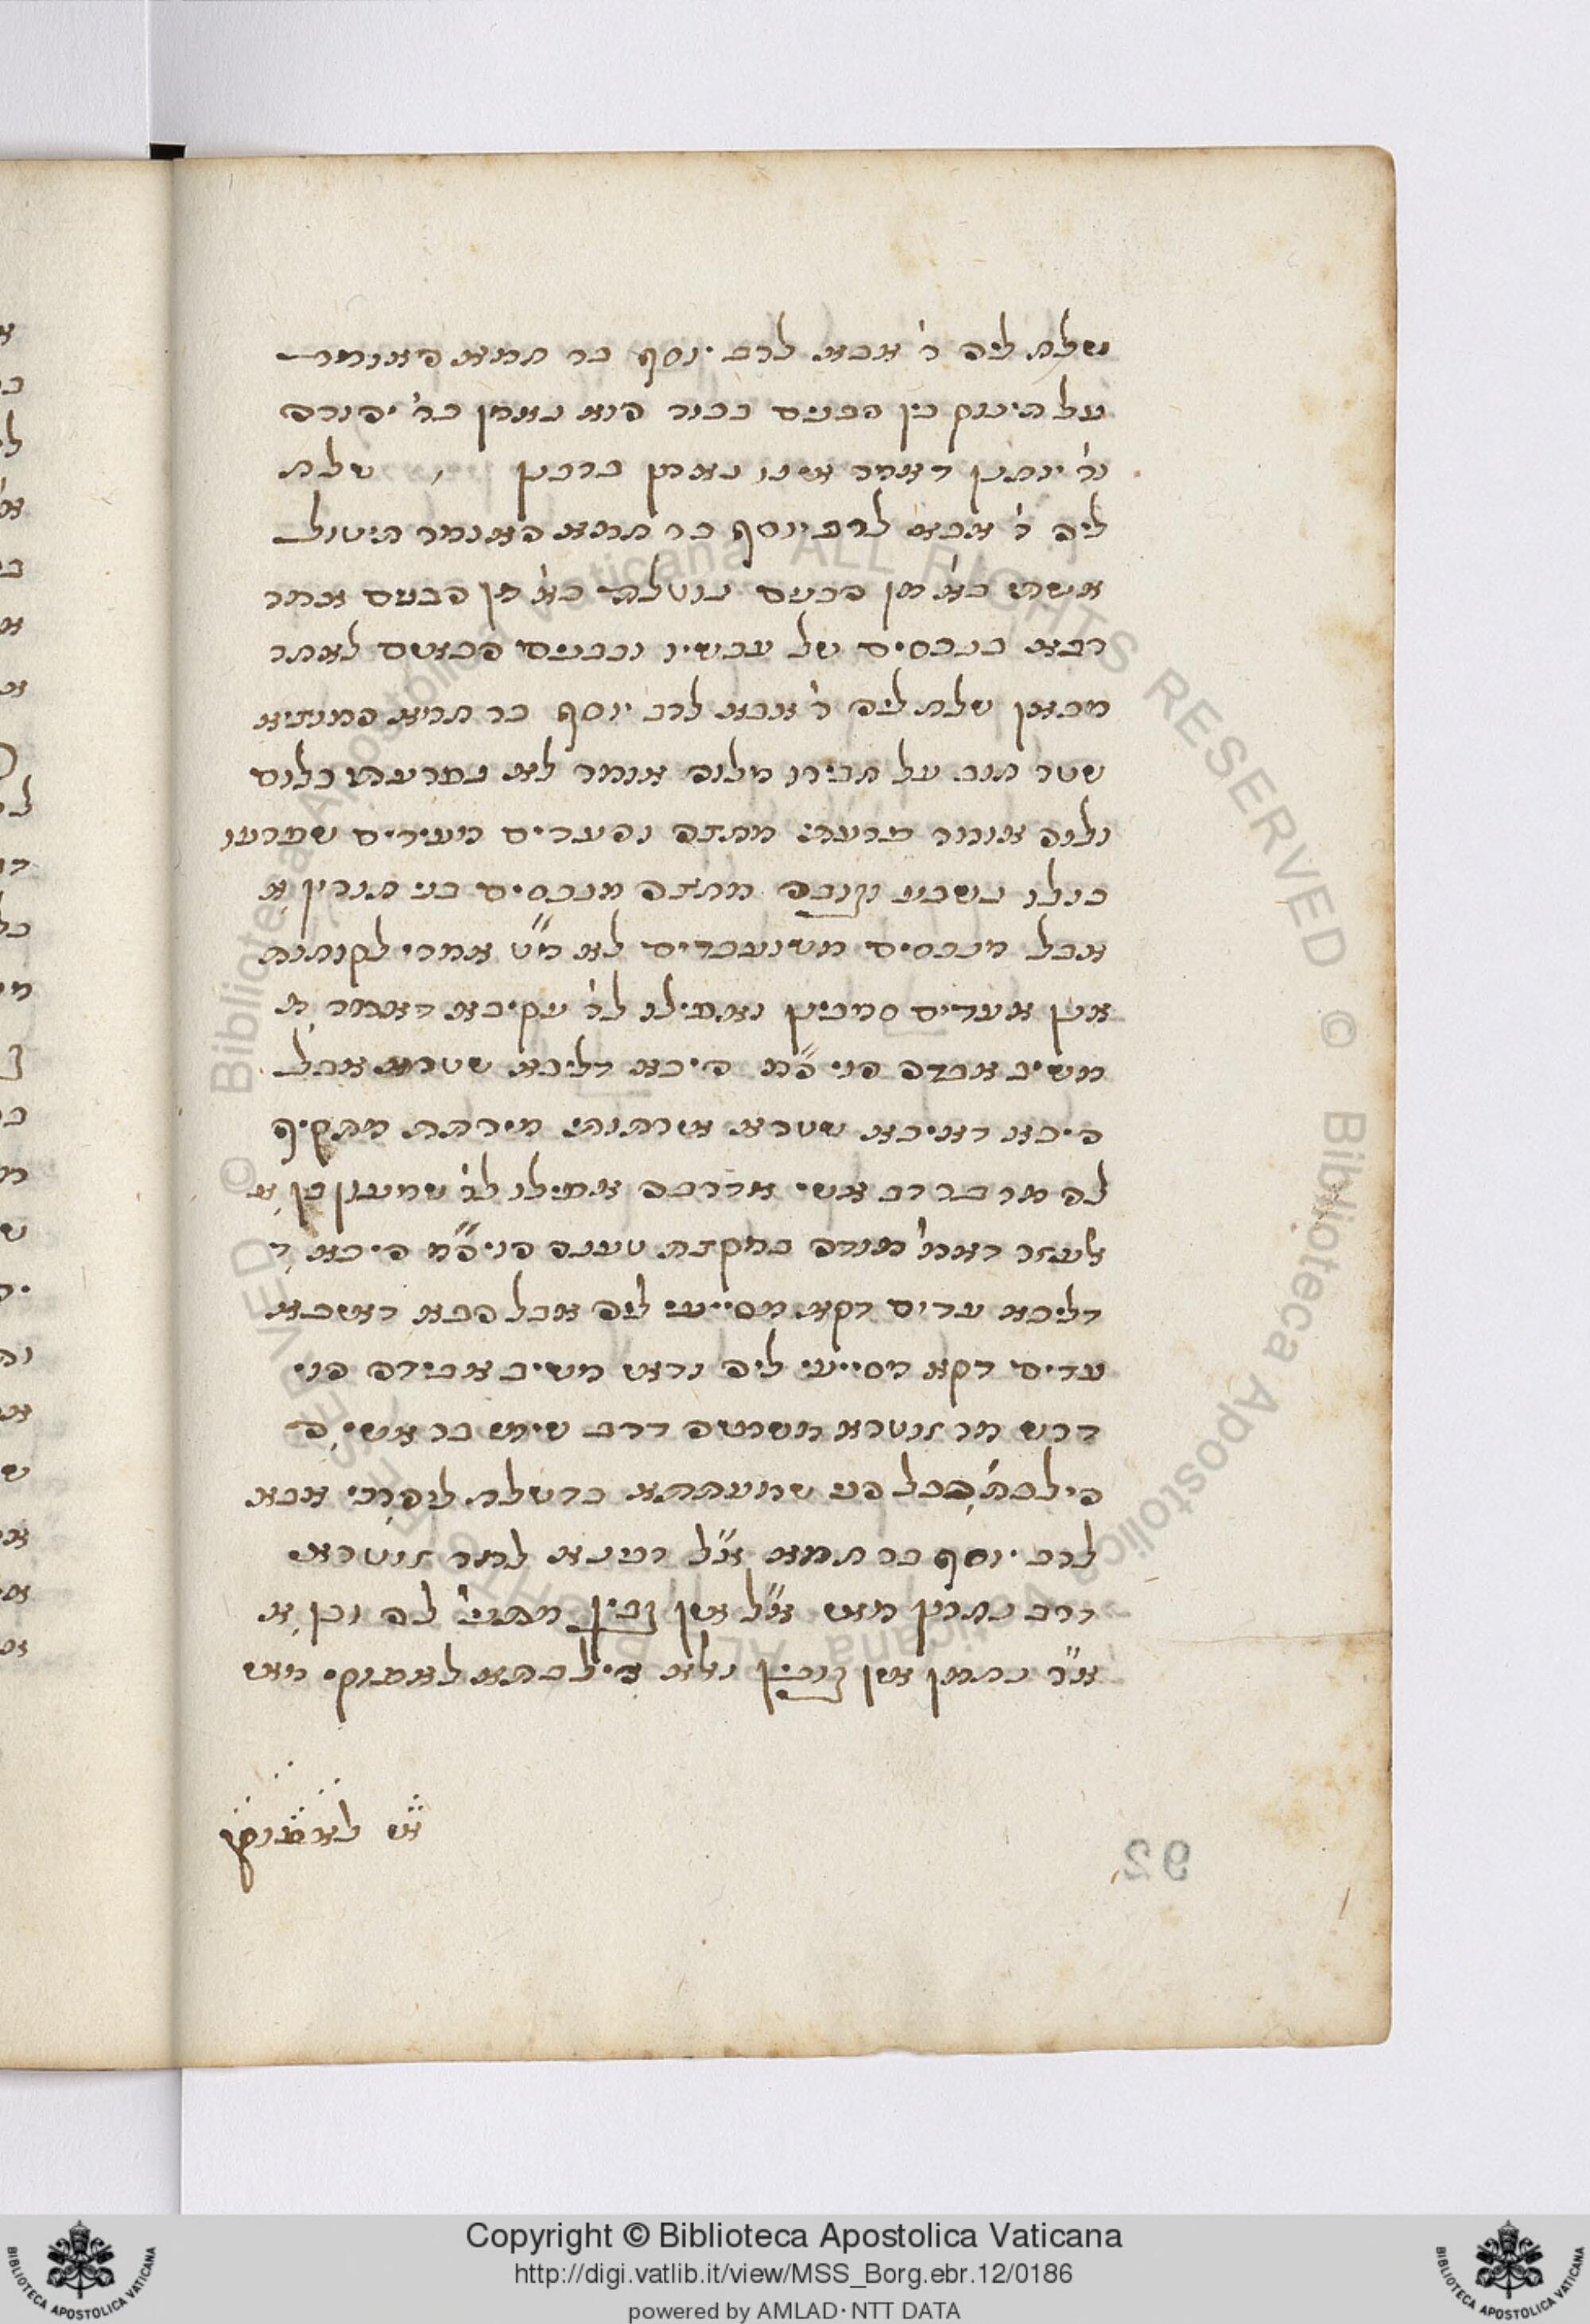 ושלח ליה ר' אבא לרב יוסף בר חמא האומר
על תינוק בין הבנים בכור הוא נאמן כר' יהודה
ור' יוחנן דאמר אינו נאמן ברבנן שלח
ליה ר' אבא לרב יוסף בר חמא האומר תיטול
אשתי כא' מן הבנים נוטלת כא' מן הבנים אמר
רבא בנכסים של עכשיו ובבנים הבאים לאחר
מכאן שלח ליה ר' אבא לרב יוסף בר חמא המוציא
שטר חוב על חבירו מלוה אומר לא נפרעתי כלום
ולוה אומר פרעתי מחצה והעדים מעידים שפרעו
כולו נשבע וגובה מחצה מנכסים בני חורין א
אבל מנכסים משועבדים לא מ"ט אמרי לקוחות
אנן אעדים סמכינן ואפילו לר' עקיבא דאמר ת
משיב אבדה הני ה"מ היכא דליכא שטרא אבל
היכא דאיכא שטרא אירתותי מירתת מתקיף
לה מר בר רב אשי אדרבה אפילו לר' שמעון בן א
אלעזר דאמ' מודה במקצת טענה הני ה"מ היכא ד
דליכא עדים דקא מסייעי ליה אבל הכא דאיכא
עדים דקא מסייעי ליה ודאי משיב אבידה הוי
דרש מר זוטרא משמיה דרב שימי בר אשי ה
הילכת' בכל הני שמעתתא כדשלח ליה רבי אבא
לרב יוסף בר חמא א"ל רבינא למר זוטרא
דרב נחמן מאי א"ל אנן מתני' לה וכן א
א"ר נחמן אנן ולא הילכתא לאפוקי מאי
אי לאפוקי
92
Copyright © Biblioteca Apostolica Vaticana
http://digi.vatlib.it/view/MSS_Borg.ebr.12/0186
powered by AMLAD·NTT DATA